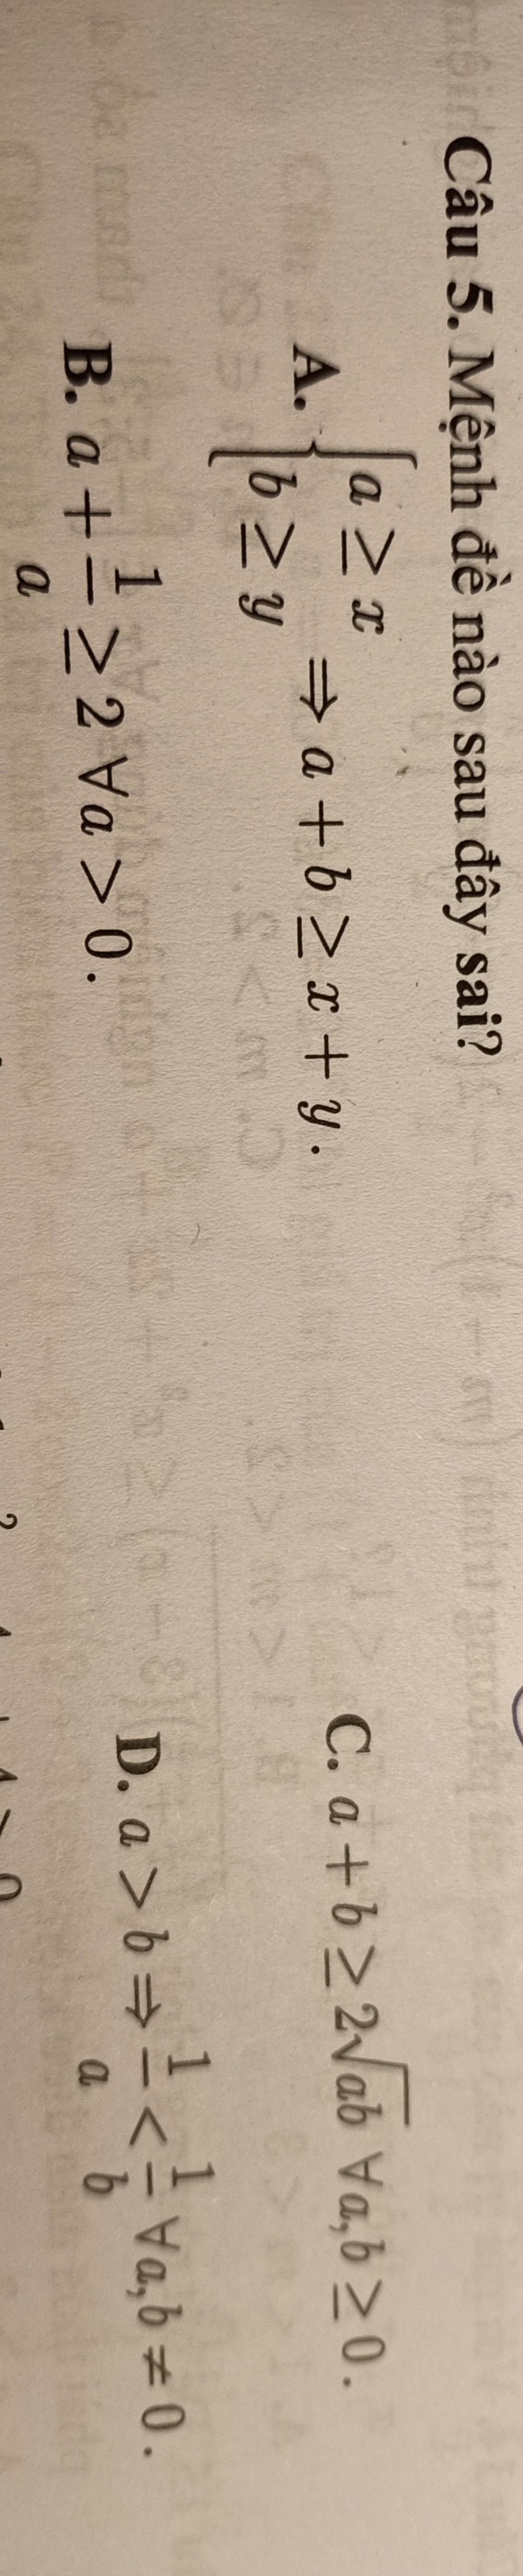 Câu 5. Mệnh đề nào sau đây sai?
A. { a ≥ x
b ≥ y ⇒ a + b ≥ x + y.
C. a + b ≥ 2√ab ∀a,b ≥ 0.
B. a + 1/a ≥ 2 ∀a > 0.
D. a > b ⇒ 1/a < 1/b ∀a,b ≠ 0.